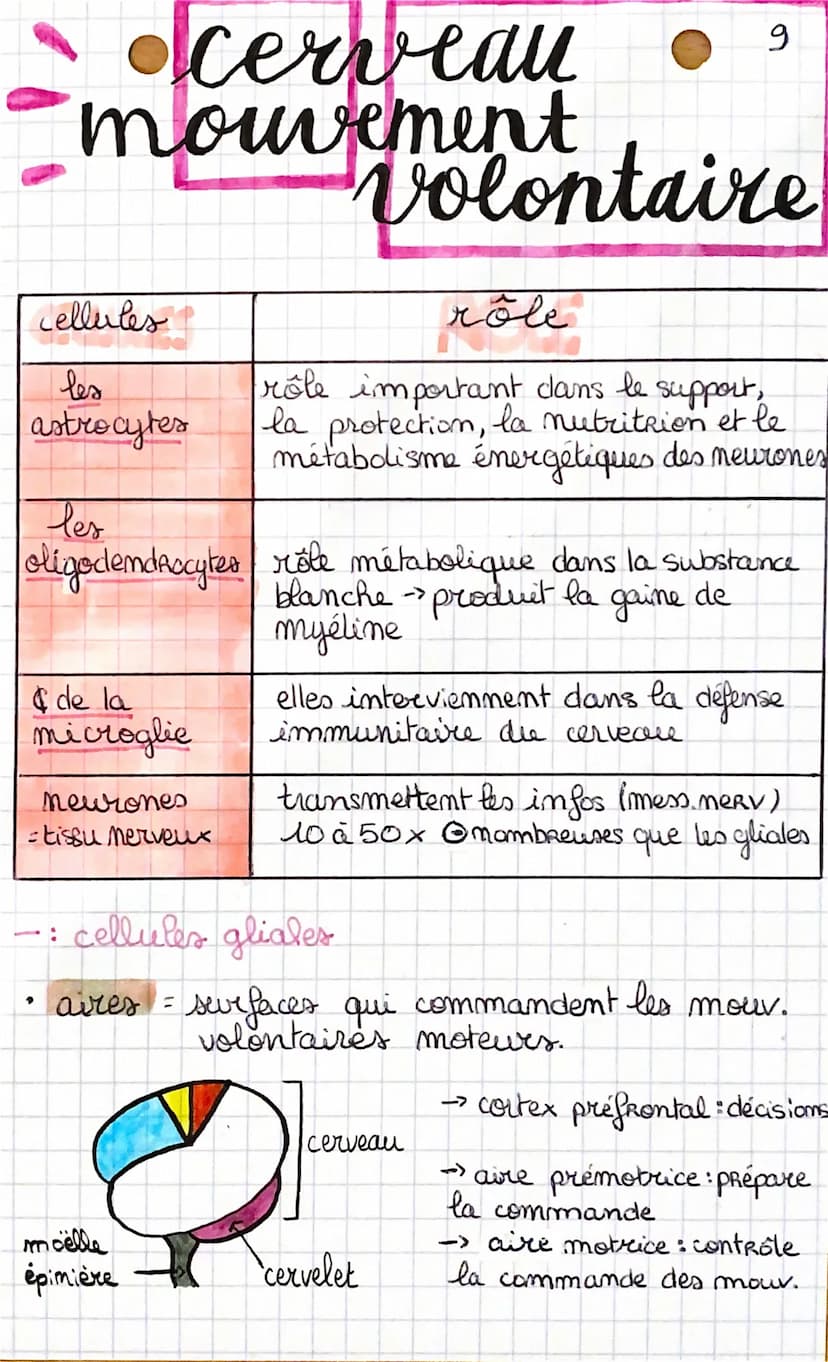 9
cerveau
mouvement
volontaire
cellules
rôle
les
astrocytes
rôle important dans le support,
la protection, la nutrition et le
métabolisme énergétiques des neurones
les
oligodendrocytes
rôle métabolique dans la substance
blanche -> produit la gaine de
myéline
¢ de la
microglie
elles interviennent dans la défense
immunitaire du cerveau
neurones
= tissu nerveux
transmettent les infos (mess. nerv)
10 à 50x ⊖nombreuses que les gliales
— : cellules gliales
• aires = surfaces qui commandent les mouv.
volontaires moteurs.
cerveau
moëlle
épinière
cervelet
-> cortex préfrontal : décisions
-> aire prémotrice : prépare
la commande
-> aire motrice : contrôle
la commande des mouv.